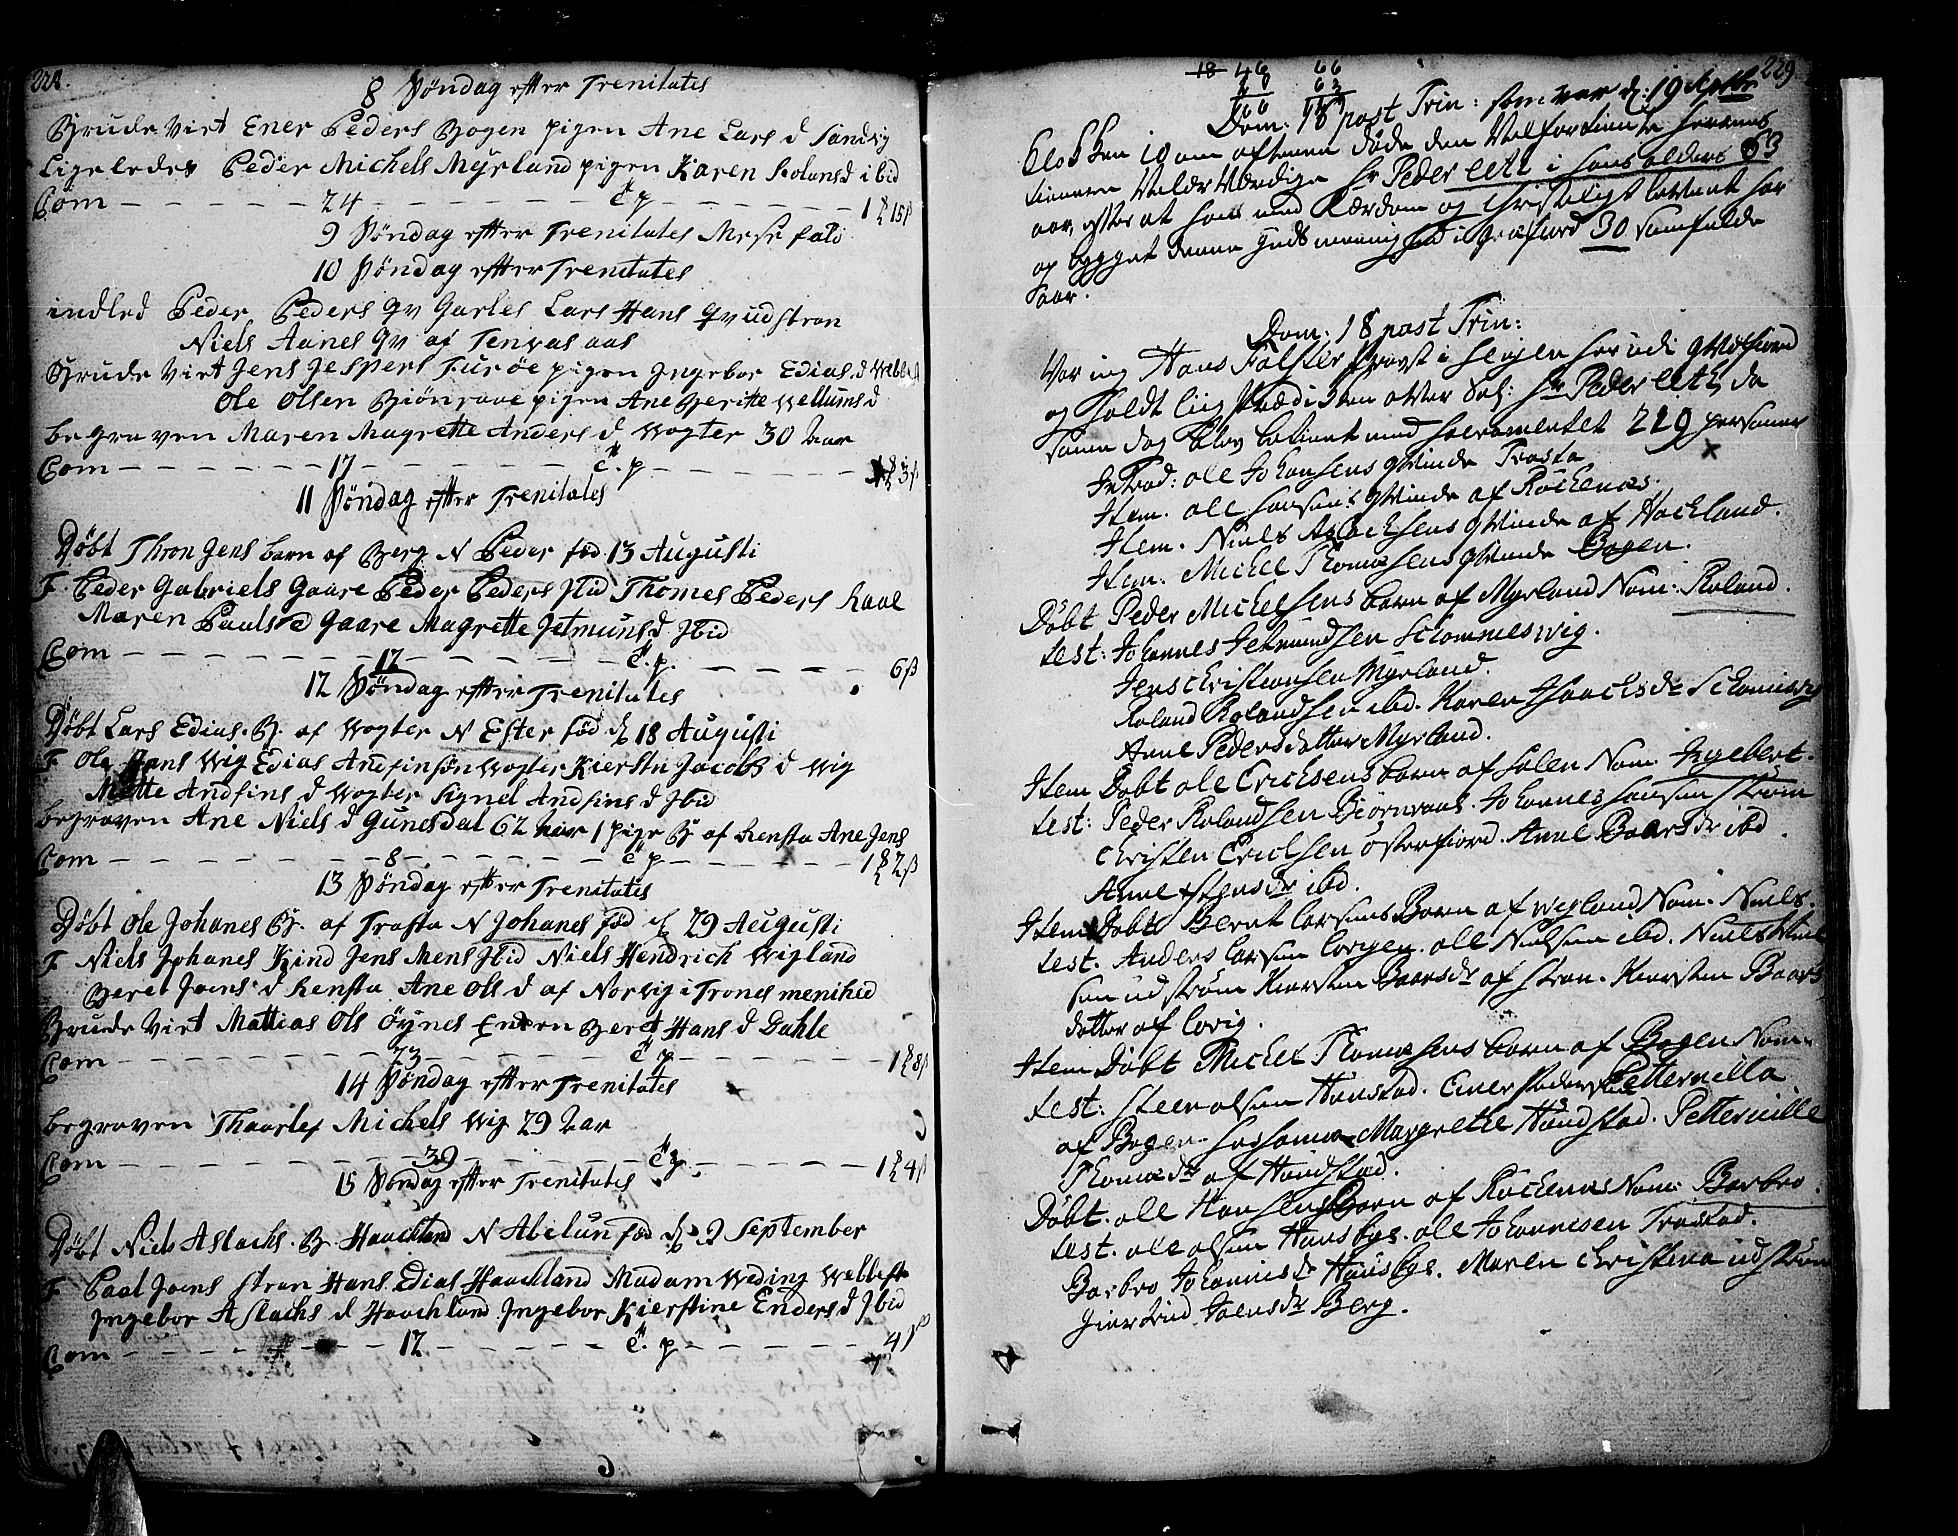 228.
8 Söndag efter Trenitates
Brude Viet Ener Peders Bogen pigen Ane Lars d Sandvig
Ligeledes Peder Michels Myrland pigen Karen Rolans d ibid
Com — 24 — C. p — 1 ℥ 15 β
9 Söndag efter Trenitates Mese fald
10 Söndag efter Trenitates
indled Peder Peders Qv Garles Lars Hans Qv udstron
Niels Aanes Qv af Tenvasaas
Brude Viet Jens Jespers Furöe pigen Ingebor Edias d
Ole Olsen Biönraae pigen Ane Beritte Wellums d
begraven Maren Magrette Anders d Wogter 30 Aar
Com — 17 — C. p — 3 β
11 Söndag efter Trenitates
Döbt Thron Jens barn af Berg N Peder föd 13 Augusti
F. Peder Gabriels Gaare Peder Peders Ibid Thomes Peders
Maren Pauls d Gaare Magrette Jetmuns d Ibid
Com — 12 — C. p. — 6 β
12 Söndag efter Trenitates
Döbt Lars Edias B. af Wogter N Ester föd d 18 Augusti
F Ole Hans Wig Edias Andfinsön Wogter Kierstn Jacobs d Wig
Mette Andfins d Wogter Signel Andfins d Ibid
begraven Ane Niels d Gunesdal 62 Aar 1 pige B af Rensta Ane Jens
Com — 8 — C p — 1 ℥ 2 β
13 Söndag efter Trenitates
Döbt Ole Johanes B. af Trasta N Johanes föd d 29 Augusti
F Niels Johanes Kind Jens Mens Ibid Niels Hendrich Wigland
Beret Joens d Rensta Ane Ols d af Norvig i Trones menihed
Brude Viet Mattias Ols Öynes Enken Beret Hans d Dahle
Com — 23 — C p — 1 ℥ 8 β
14 Söndag efter Trenitates
begraven Thaarlef Michels Wig 29 Aar
Com — 39 — C p. — 1 ℥ 4 β
15 Söndag efter Trenitates
Döbt Niels Aslachs B. Haackland N Abelun föd d 9 September
F Paal Joens stran Hans Edias Haackland Madam Weding
Ingebor Aslachs d Haachland Ingebor Kierstine Enders d Ibid
Com — 12 — C. p — 4 β
229
18 46 66
20 63
66 129
Dom: 18 post Trin: som var d: 19
Clokken 10 om aftenen döde den Velfortiente Herrens
tienere Velærværdige Hr Peder Eitz i hans alders 63
aar, efter at hans med Lærdom og Christeligt levnet har
og bygget denne Guds meenighed i 30 samfulde
aar.
Dom: 18 post Trin:
Var ieg Hans Falster Provst i Senjen her udi Qvæfiord
og holdt liig Prædicken over Sal: Hr Peder Eitz, da
samme dag blev betient med Sacramentet 229 personer
Introd: Ole Johansens Qvinde Trasta
Item. Ole Hansens Qvinde af Röckenæs.
Item. Niels Aslachsens Qvinde af Hackland.
Item. Michel Thomæsens Qvinde Bogen.
Döbt Peder Michelsens barn af Myrland Nom: Roland.
test: Johannes Jetmundsen Schommeswig.
Jens Christiansen Myrland.
Roland Rolandsen ibd. Karen Isaachs dr
Anne Pedersdatter Myrland.
Item Döbt Ole Ericksens barn af Solen Nom: Ingebert.
test: Peder Rolandsen Biörnraae. Johannes Hansen ström
Christen Ericksen österfiord. Anne Baars dr ibd.
Anne Stens dr ibd.
Item Döbt Bernt Larsens Barn af Wigland Nom. Niels.
test. Anders Larsen Lorgen. Ole Nielsen ibd. Niels
sen udström Kiersten Baarsdr af stran. Kiersten Baars
datter af Lovig.
Item Döbt Michel Thomæsens barn af Bogen Nom.
Petternilla.
test: Steen Olsen Hunstad. Ener Pedersen
af Bogen. Susanna Margrethe Hundstad. Petternille
Thomæ dr af Hundstad.
Döbt. Ole Hansens Barn af Röckenæs Nom: Barbro.
test. Ole Olsen Hunsbye. Ole Johannesen Trastad.
Barbro Johannis dr Hunsbye. Maren Christina udström
Giertrud Joens dr Berg.